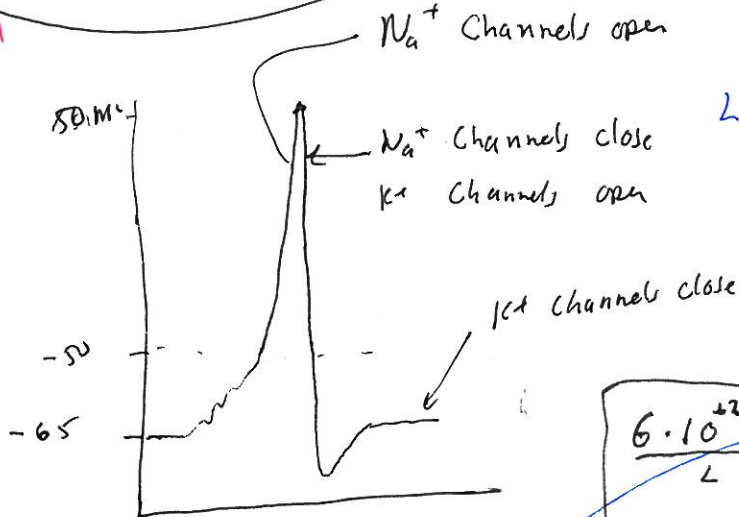 Na+ Channels open
50 mV
Na+ Channels close
K+ Channels open
K+ Channels close
-50
-65
L